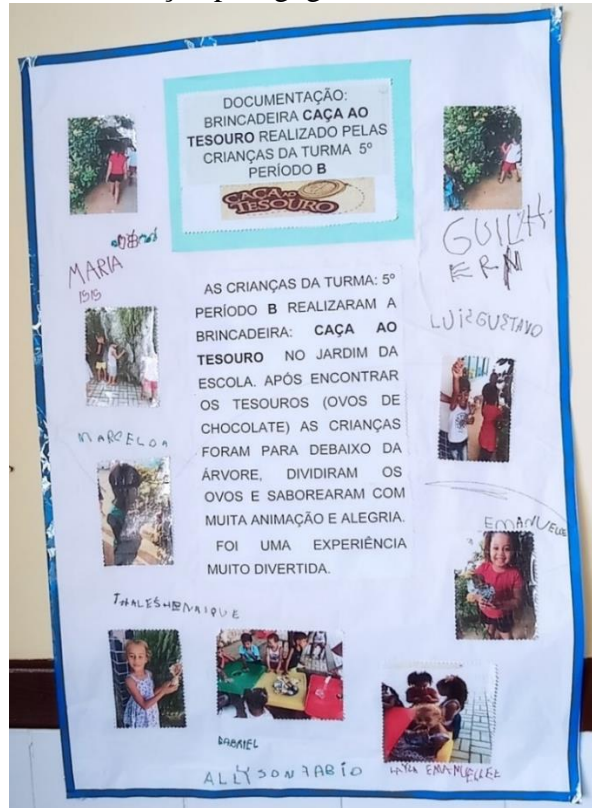 DOCUMENTAÇÃO:
BRINCADEIRA CAÇA AO
TESOURO REALIZADO PELAS
CRIANÇAS DA TURMA 5º
PERÍODO B
CAÇA AO
TESOURO
MARIA
ISIS
GUILH
ERM
LUIZGUSTAVO
AS CRIANÇAS DA TURMA: 5º
PERÍODO B REALIZARAM A
BRINCADEIRA: CAÇA AO
TESOURO NO JARDIM DA
ESCOLA. APÓS ENCONTRAR
OS TESOUROS (OVOS DE
CHOCOLATE) AS CRIANÇAS
FORAM PARA DEBAIXO DA
ÁRVORE, DIVIDIRAM OS
OVOS E SABOREARAM COM
MUITA ANIMAÇÃO E ALEGRIA.
FOI UMA EXPERIÊNCIA
MUITO DIVERTIDA.
MARCELOA
EMANUELLE
THALESHENRIQUE
GABRIEL
ALLYSONFABIO
LAYLA EMANUELLE